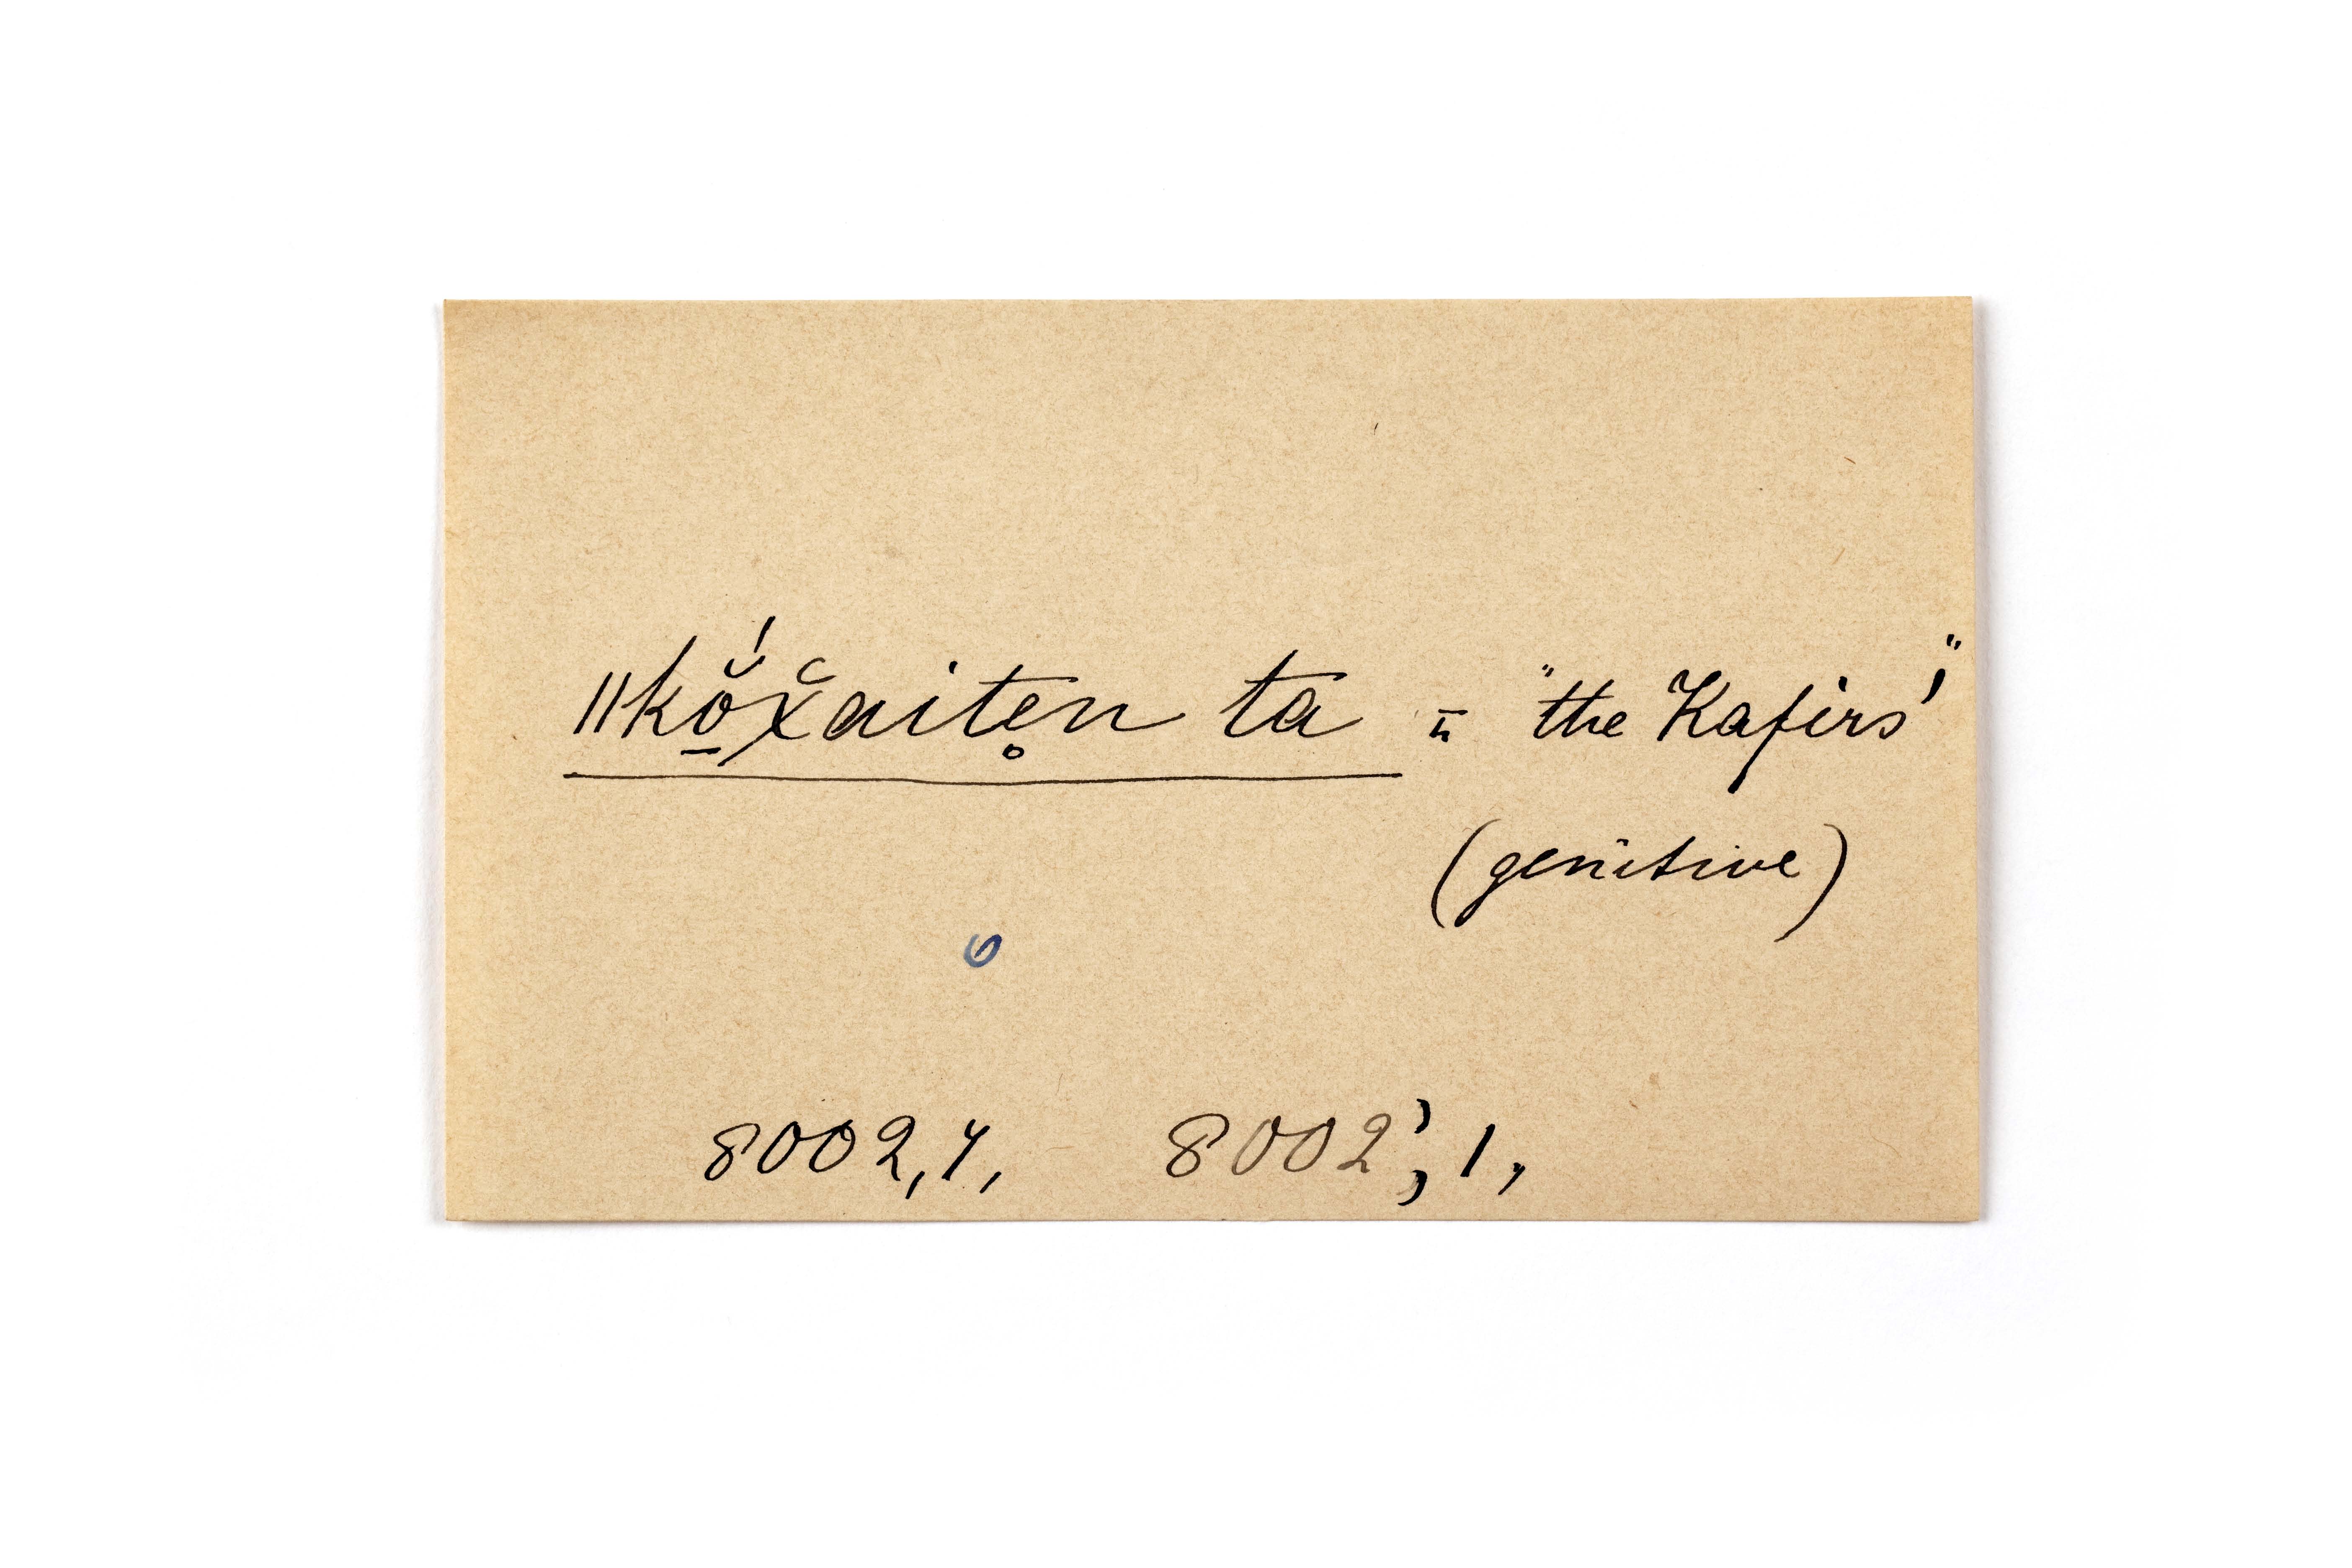 ǁkṓ̱̆χ̆aite̥n ta = "the Kafirs'"
(genitive)
6
8002,4, 8002', 1,